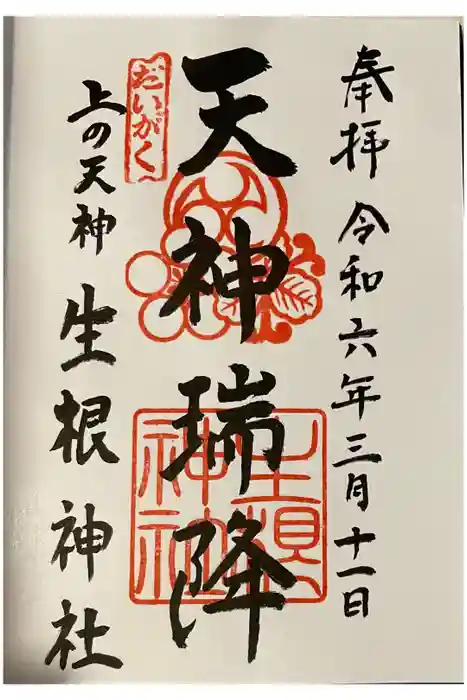 奉拝 令和六年三月十一日
天神瑞降
だいがく
上の天神 生根神社
生根神社